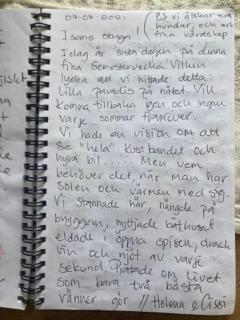 07.08 2021
(PS vi älskar era
hundar, och er
I sans stuga!
fina vardskap
Idag är sista dagen på denna
fina Semestervecka. Vilken
lycka att vi hittade detta
lilla paradis på nätet. Vill
komma tillbaka igen och ingen
varje sommar framöver.
Vi hade en vision om att
se "hela" kust bandet och
hyra bil..... Men vem
behöver det, när man har
solen och värmen med sig.
Vi stannade här, hängde på
bryggan, nyttjade bathuset
eldade i öppna spisen, drack
vin och njöt av varje
sekund. Pratade om livet
som bara två bästa
vänner gör // Helena & Cissi